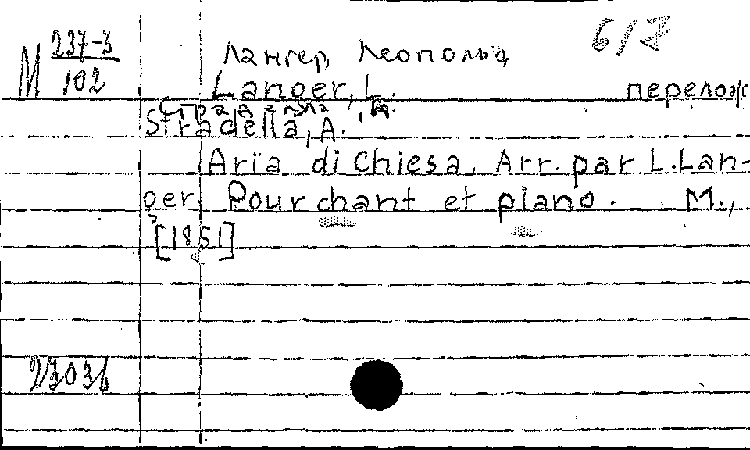 М 237-3
102
б/з
Лангер, Леопольд
Langer, L. перелож
Страделла, А.
Stradella, A.
Aria di Chiesa. Arr. par L. Lan-
ger. Pour chant et piano. M.,
[1851]
27036